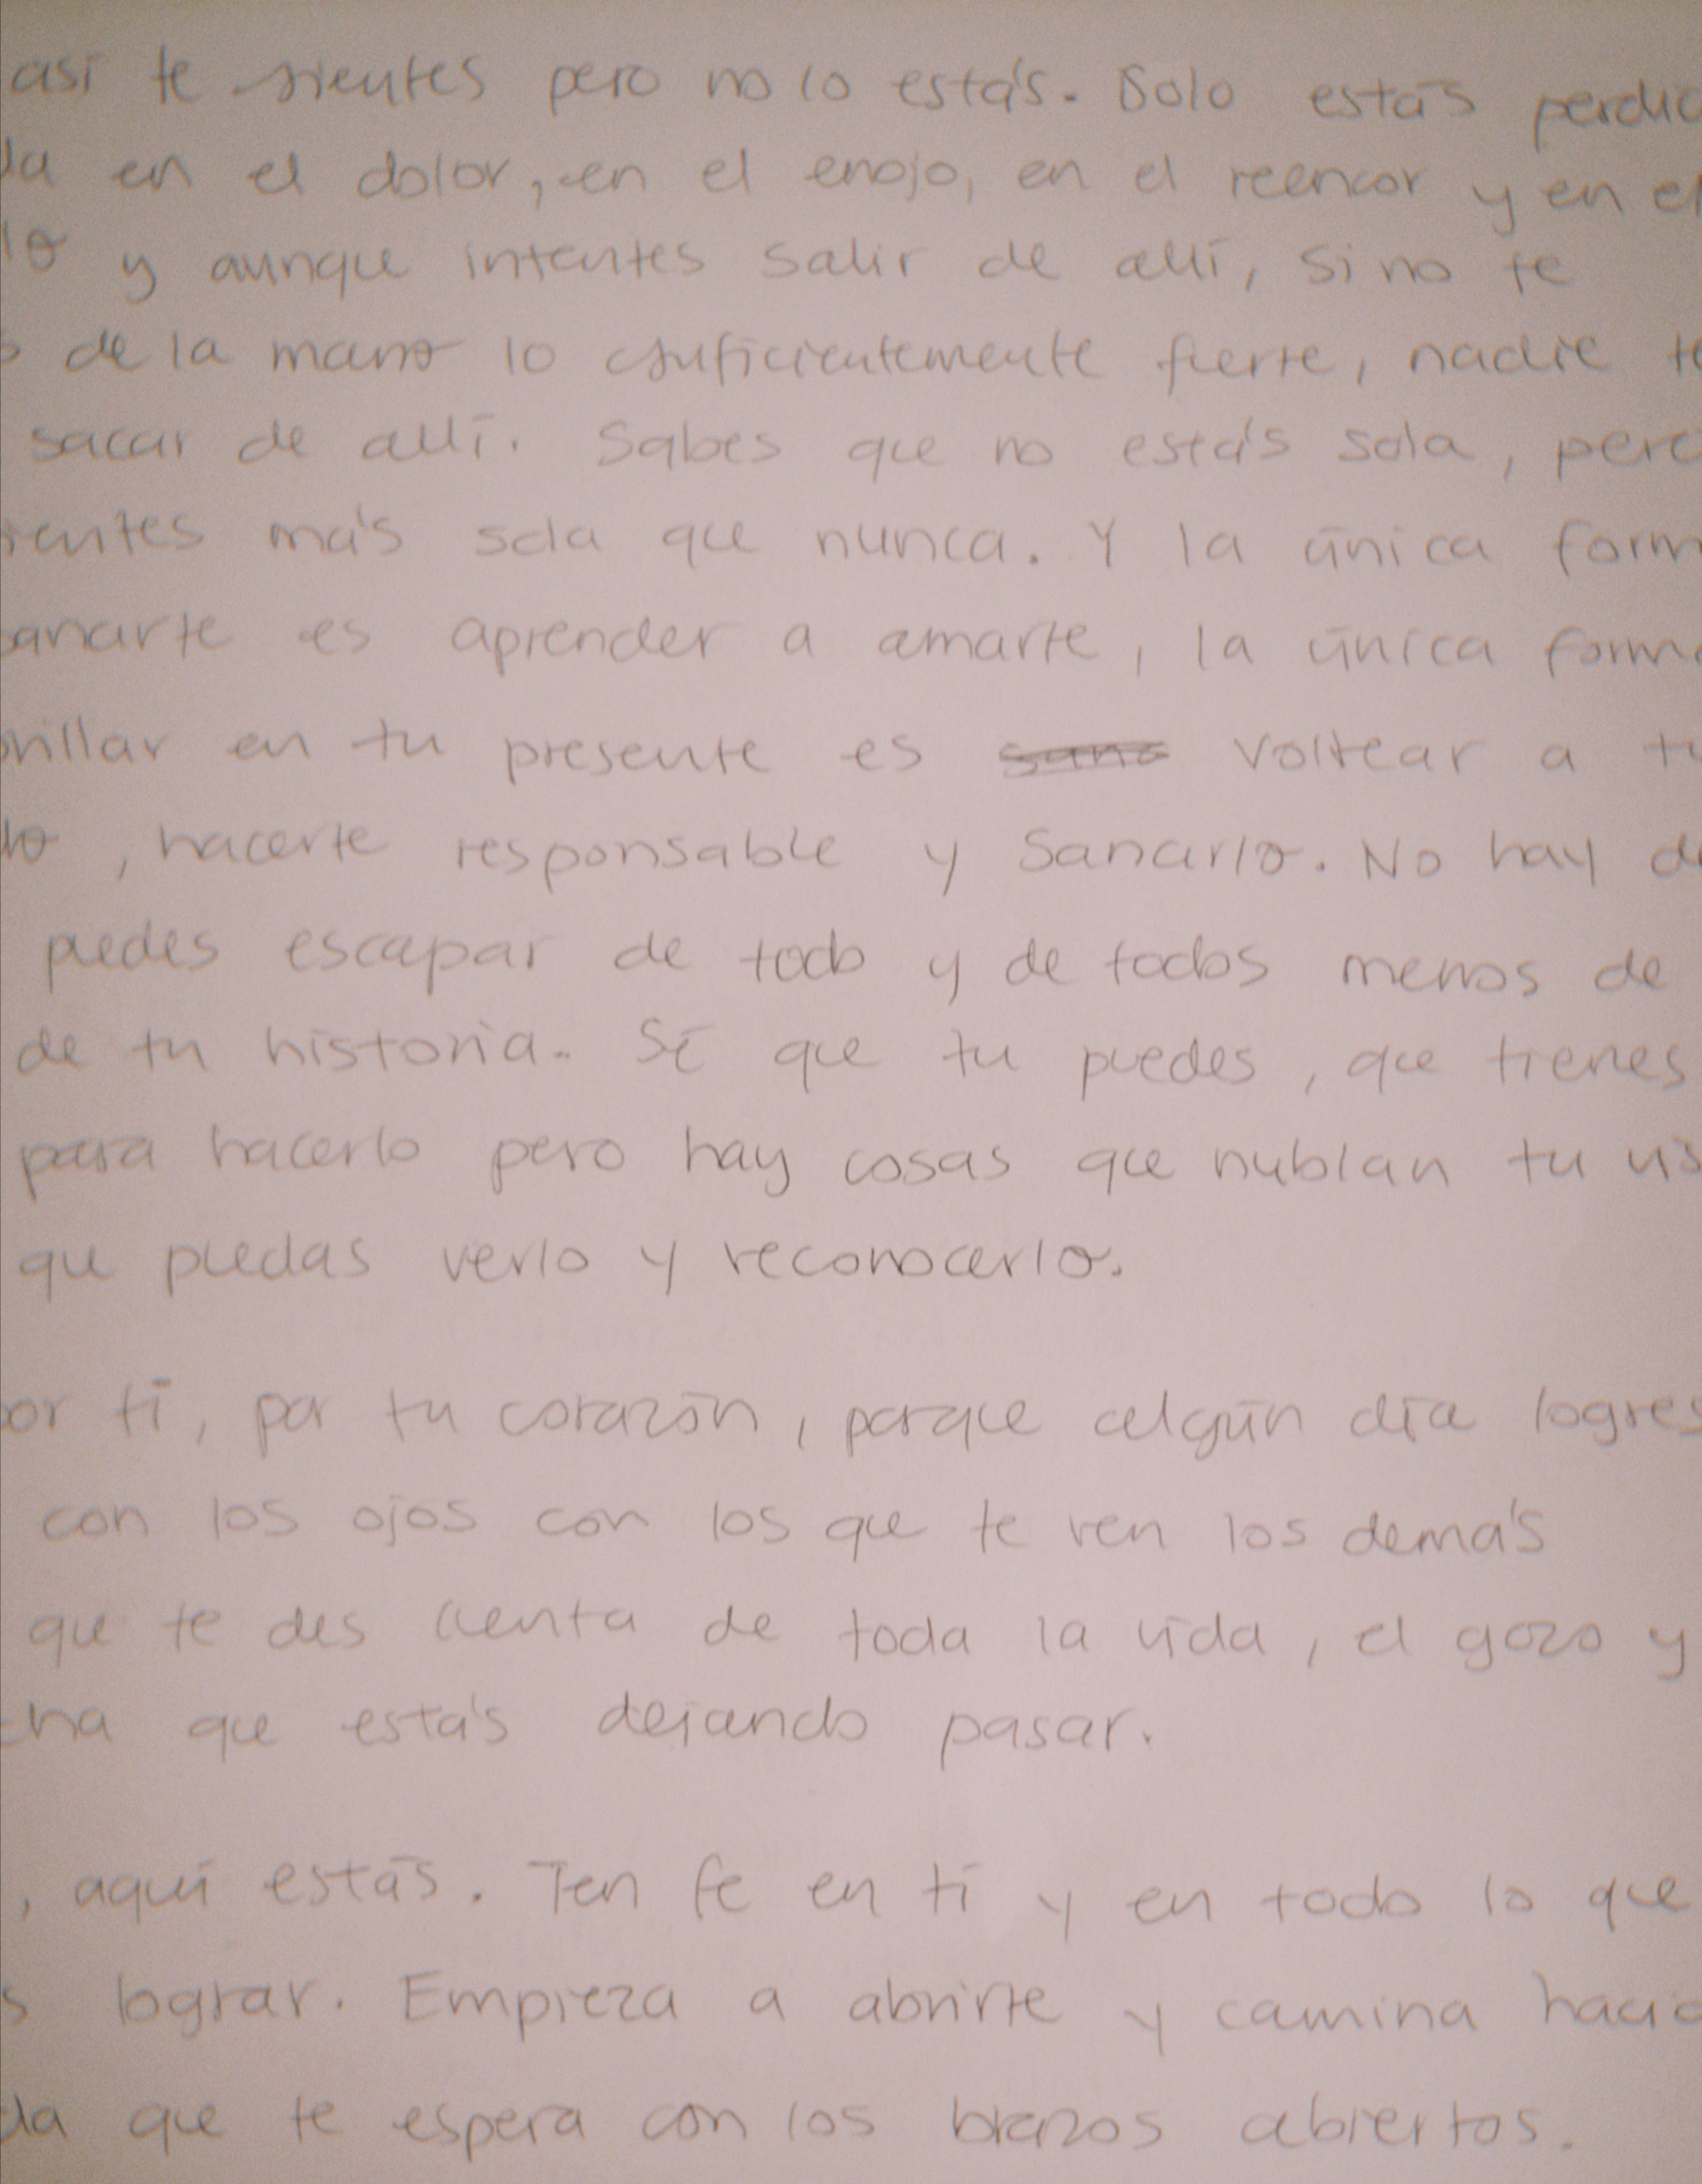 así te sientes pero no lo estás. Solo estás perdid
da en el dolor, en el enojo, en el reencor y en el
lo y aunque intentes salir de allí, si no te
s de la mano lo suficientemente fierte, nadie te
sacar de allí. Sabes que no estás sola, pero
ientes más sola que nunca. Y la única form
sanarte es aprender a amarte, la única forma
brillar en tu presente es sana voltear a tu
do, hacerte responsable y sanarlo. No hay de
puedes escapar de todo y de todos menos de
de tu historia. Sé que tu puedes, que tienes
para hacerlo pero hay cosas que nublan tu vis
que puedas verlo y reconocerlo.
por ti, por tu corazón, porque algún día logres
con los ojos con los que te ven los demás
que te des cuenta de toda la vida, el gozo y
cha que estás dejando pasar.
, aquí estás. Ten fe en ti y en todo lo que
s lograr. Empieza a abrirte y camina hacia
da que te espera con los brazos abiertos.